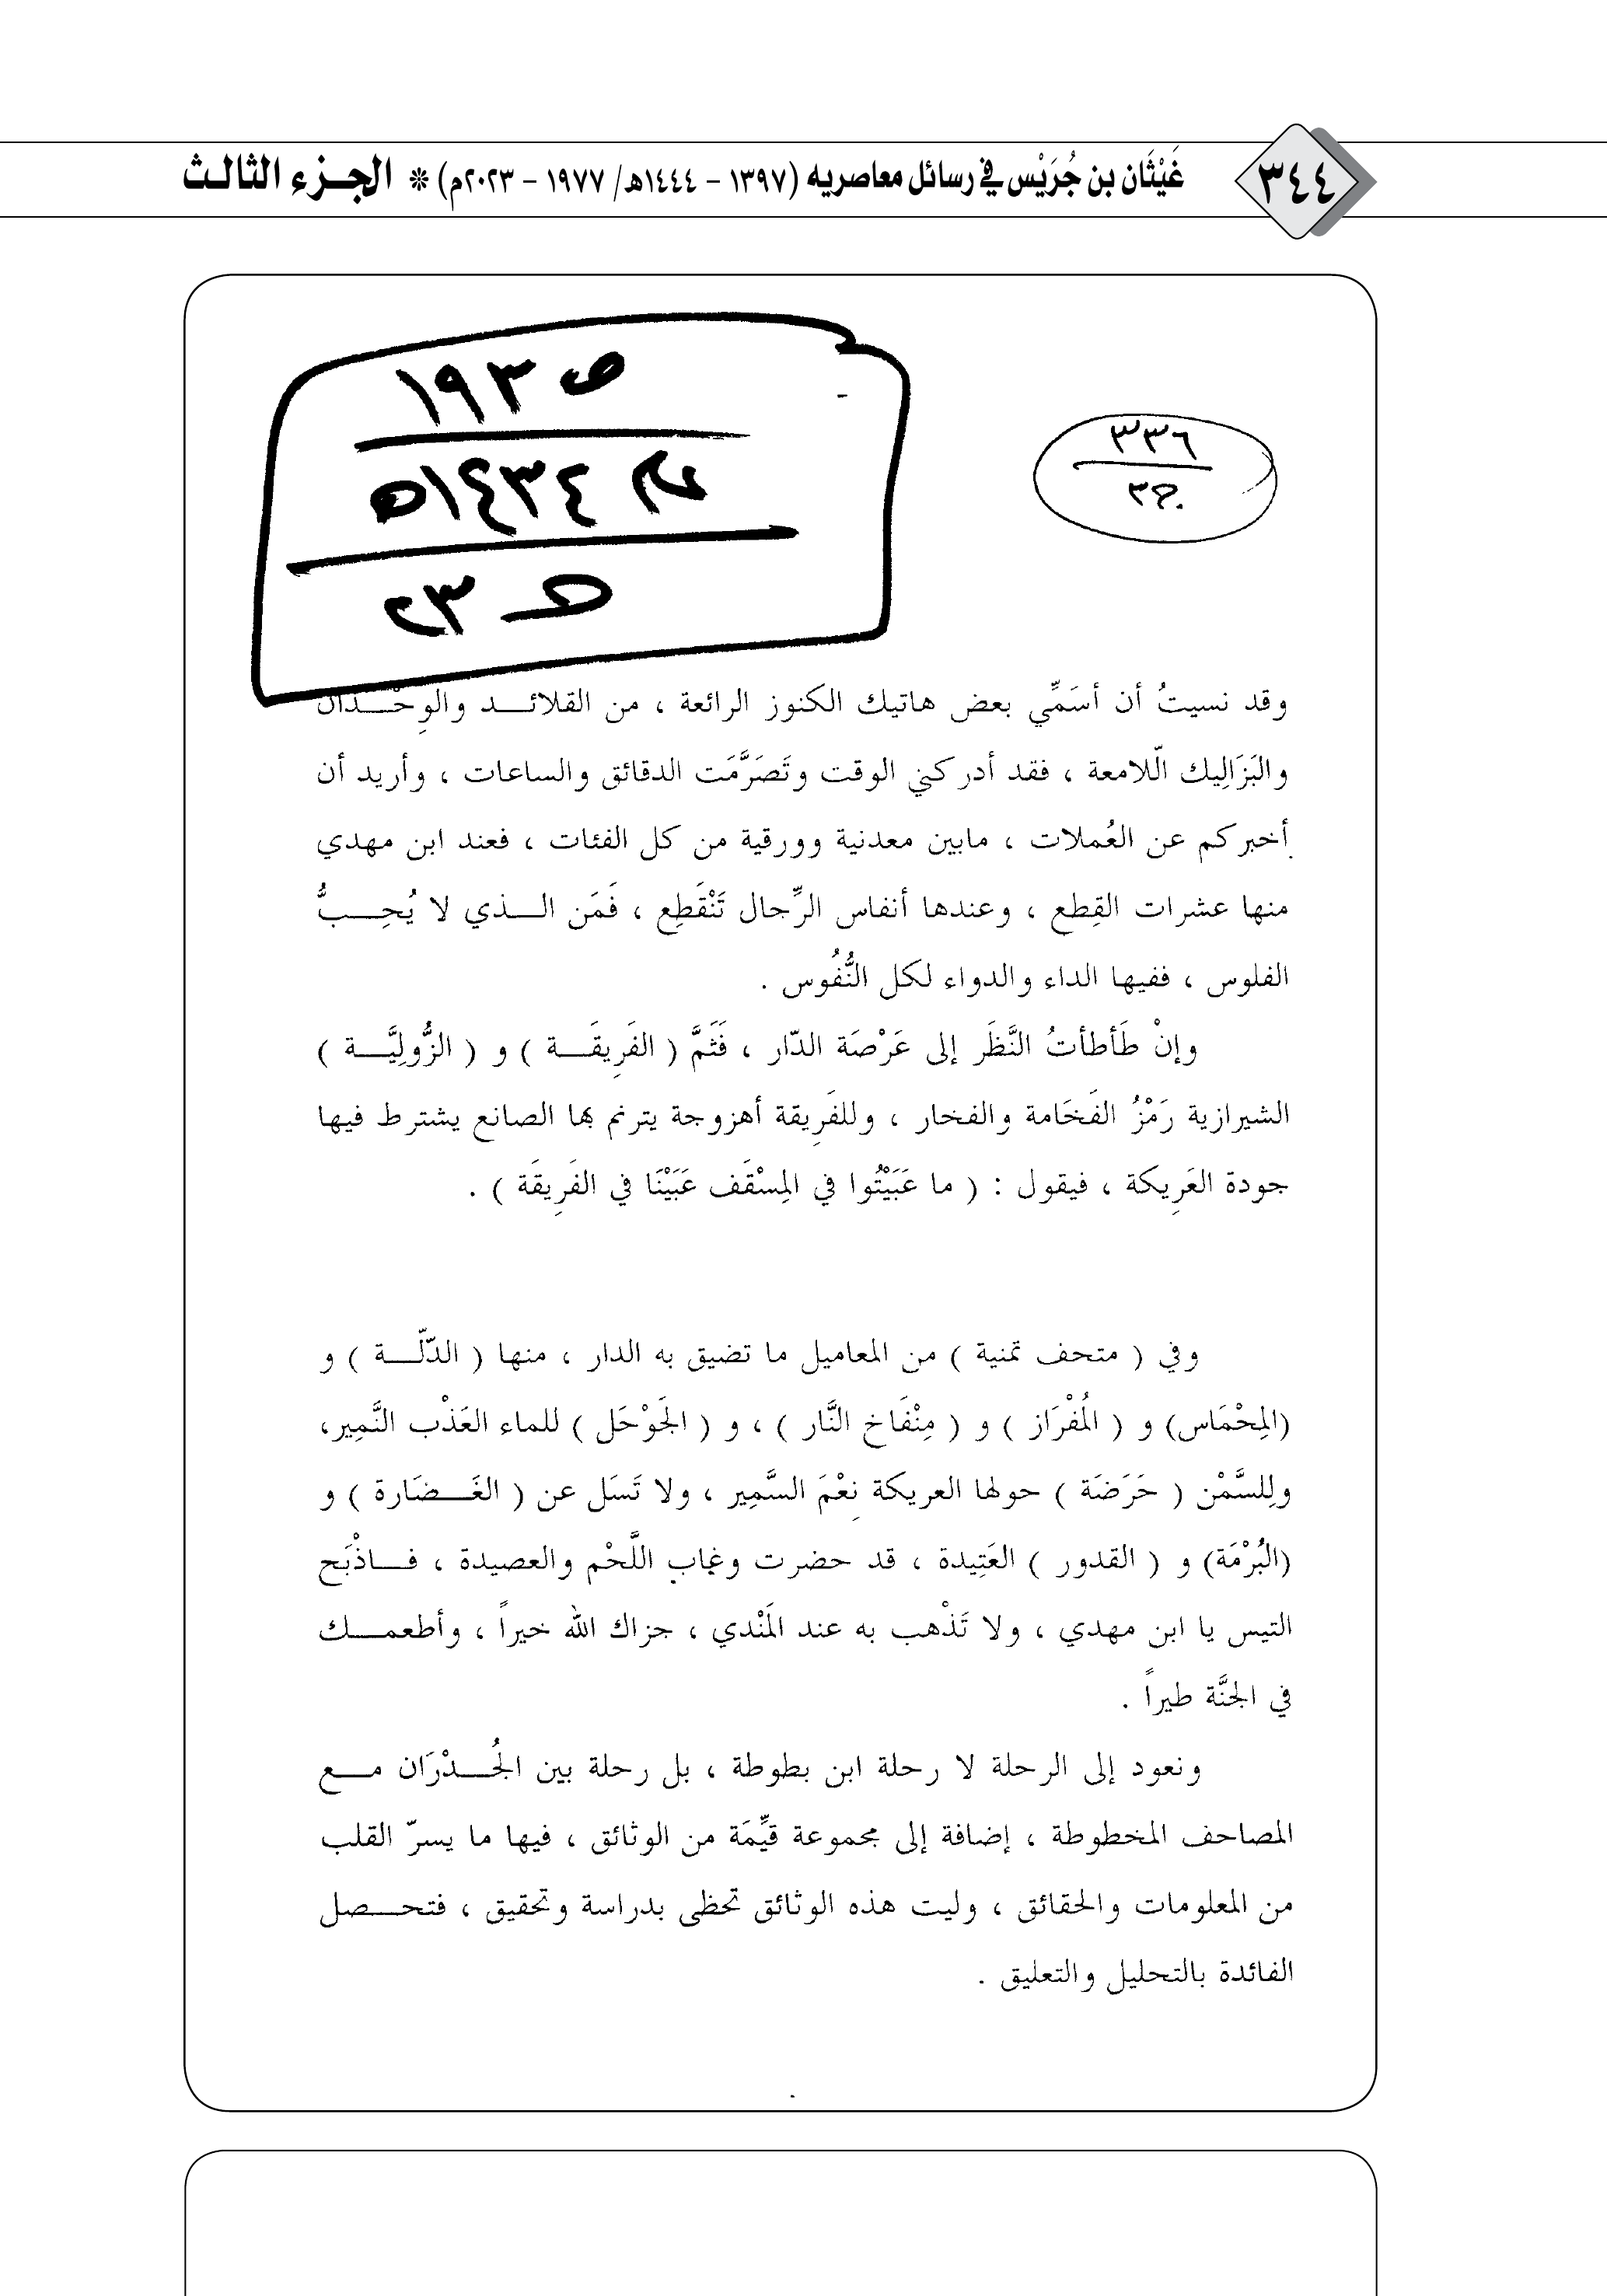 ٣٤٤
غَيْثَان بن جُرَيْس في رسائل معاصريه (١٣٩٧ - ١٤٤٤هـ/ ١٩٧٧ - ٢٠٢٣م) * الجـزء الثالـث
ص ١٩٣
١٤٣٤هـ
٣٣٦
ج٣
وقد نسيتُ أن أسَمِّي بعض هاتيك الكنوز الرائعة ، من القلائـد والوِحْـدان
والبَزَالِيك الّلامعة ، فقد أدركني الوقت وتَصَرَّمَت الدقائق والساعات ، وأريد أن
أخبركم عن العُملات ، مابين معدنية وورقية من كل الفئات ، فعند ابن مهدي
منها عشرات القِطع ، وعندها أنفاس الرِّجال تَنْقَطِع ، فَمَن الـذي لا يُحِـبُّ
الفلوس ، ففيها الداء والدواء لكل النُّفُوس .
وإنْ طَأطأتُ النَّظَر إلى عَرْصَة الدّار ، فَثَمَّ ( الفَرِيقَـة ) و ( الزُّولِيَّـة )
الشيرازية رَمْزُ الفَخَامة والفخار ، وللفَرِيقة أهزوجة يترنم بها الصانع يشترط فيها
جودة العَرِيكة ، فيقول : ( ما عَبَيْتُوا في المِسْقَف عَبَيْنَا في الفَرِيقَة ) .
وفي ( متحف تمنية ) من المعاميل ما تضيق به الدار ، منها ( الدّلّـة ) و
(المِحْمَاس) و ( المُفْرَاز ) و ( مِنْفَاخ النَّار ) ، و ( الجَوْحَل ) للماء العَذْب النَّمِير،
ولِلسَّمْن ( حَرَضَة ) حولها العريكة نِعْمَ السَّمِير ، ولا تَسَل عن ( الغَـضَارة ) و
(البُرْمَة) و ( القدور ) العَتِيدة ، قد حضرت وغاب اللَّحْم والعصيدة ، فـاذْبَح
التيس يا ابن مهدي ، ولا تَذْهب به عند المَنْدي ، جزاك الله خيراً ، وأطعمـك
في الجنَّة طيراً .
ونعود إلى الرحلة لا رحلة ابن بطوطة ، بل رحلة بين الجُـدْرَان مـع
المصاحف المخطوطة ، إضافة إلى مجموعة قيِّمَة من الوثائق ، فيها ما يسرّ القلب
من المعلومات والحقائق ، وليت هذه الوثائق تحظى بدراسة وتحقيق ، فتحـصل
الفائدة بالتحليل والتعليق .